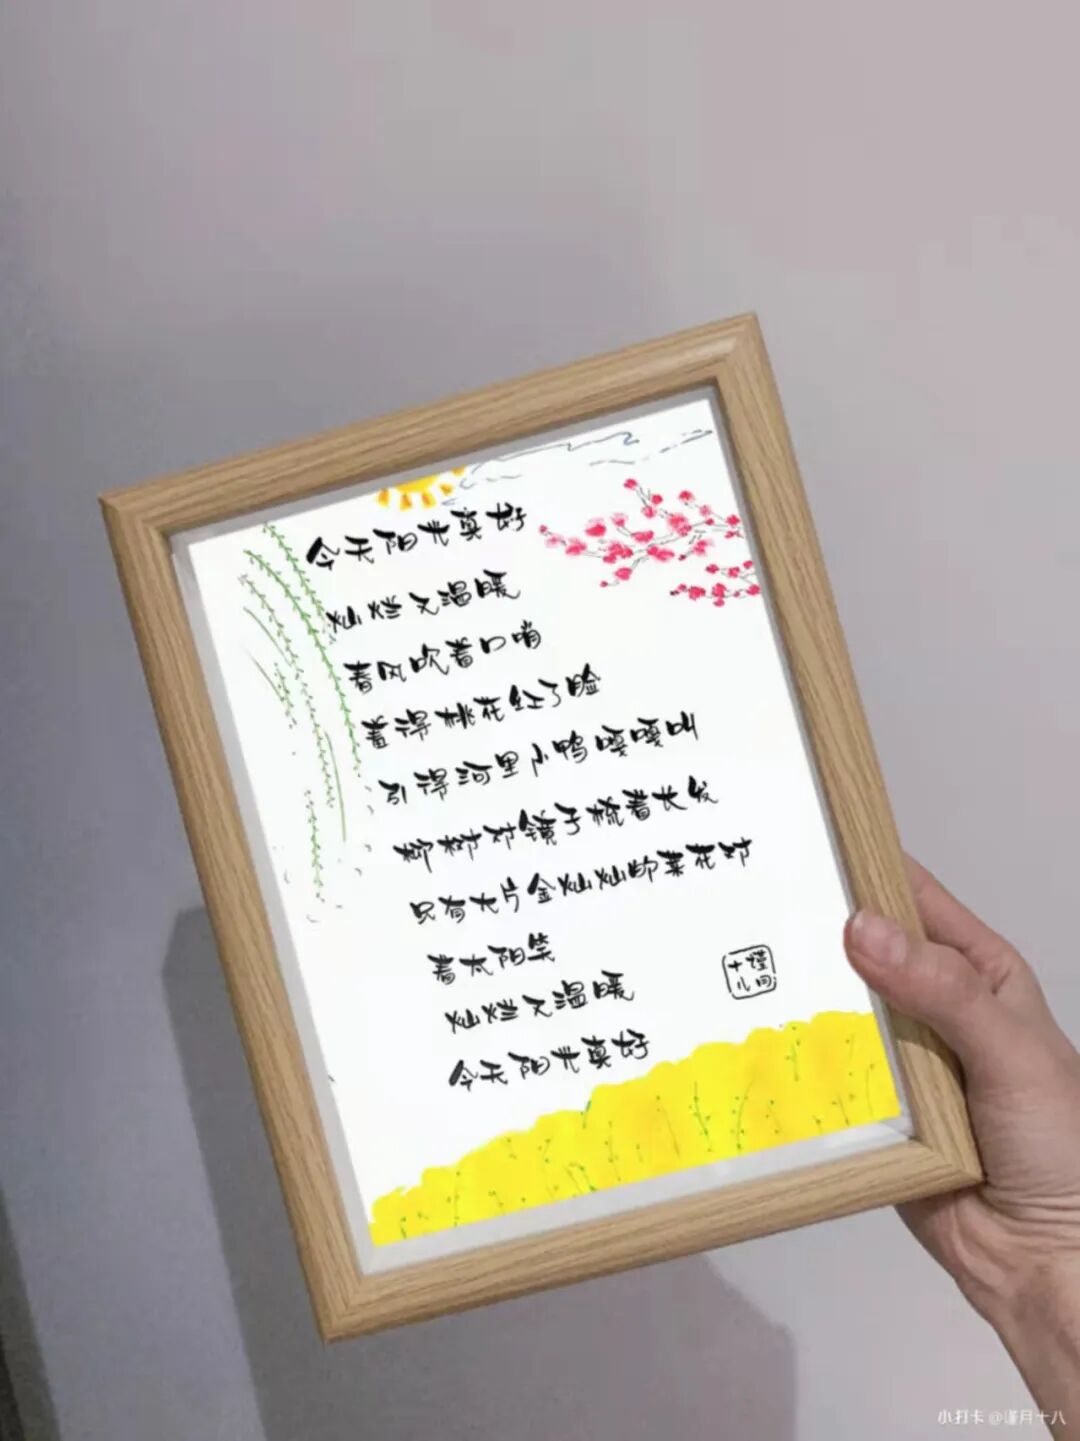 今天阳光真好
灿烂又温暖
春风吹着口哨
羞得桃花红了脸
引得河里小鸭嘎嘎叫
柳树对镜子梳着长发
只有大片金灿灿的菜花对
着太阳笑
灿烂又温暖
今天阳光真好
谨月
十八
小打卡 @谨月十八